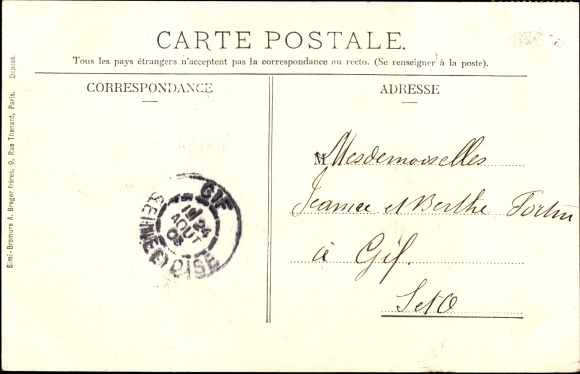 CARTE POSTALE.
Tous les pays étrangers n'acceptent pas la correspondance au recto. (Se renseigner à la poste).
CORRESPONDANCE
ADRESSE
M Mesdemoiselles
Jeanne et Berthe Fortin
à Gif.
S et O
GIF
24
AOUT
05
SEINE ET OISE
Simi-Bromure A. Breger frères, 9, Rue Thénard, Paris. Déposé.